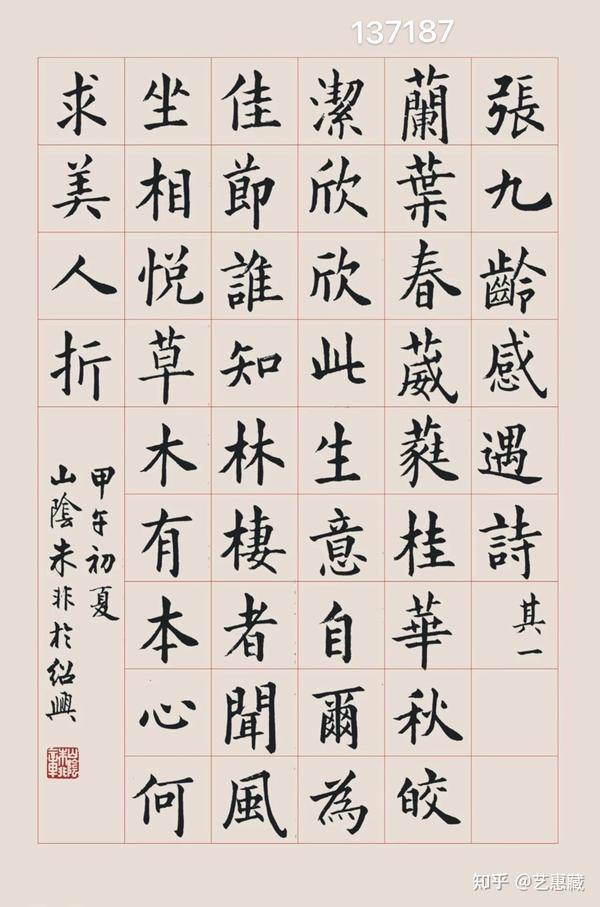 137187
張九齡感遇詩其一
蘭葉春葳蕤桂華秋皎
潔欣欣此生意自爾為
佳節誰知林棲者聞風
坐相悦草木有本心何
求美人折
甲午初夏
山陰未非於紹興
知乎 @艺惠藏